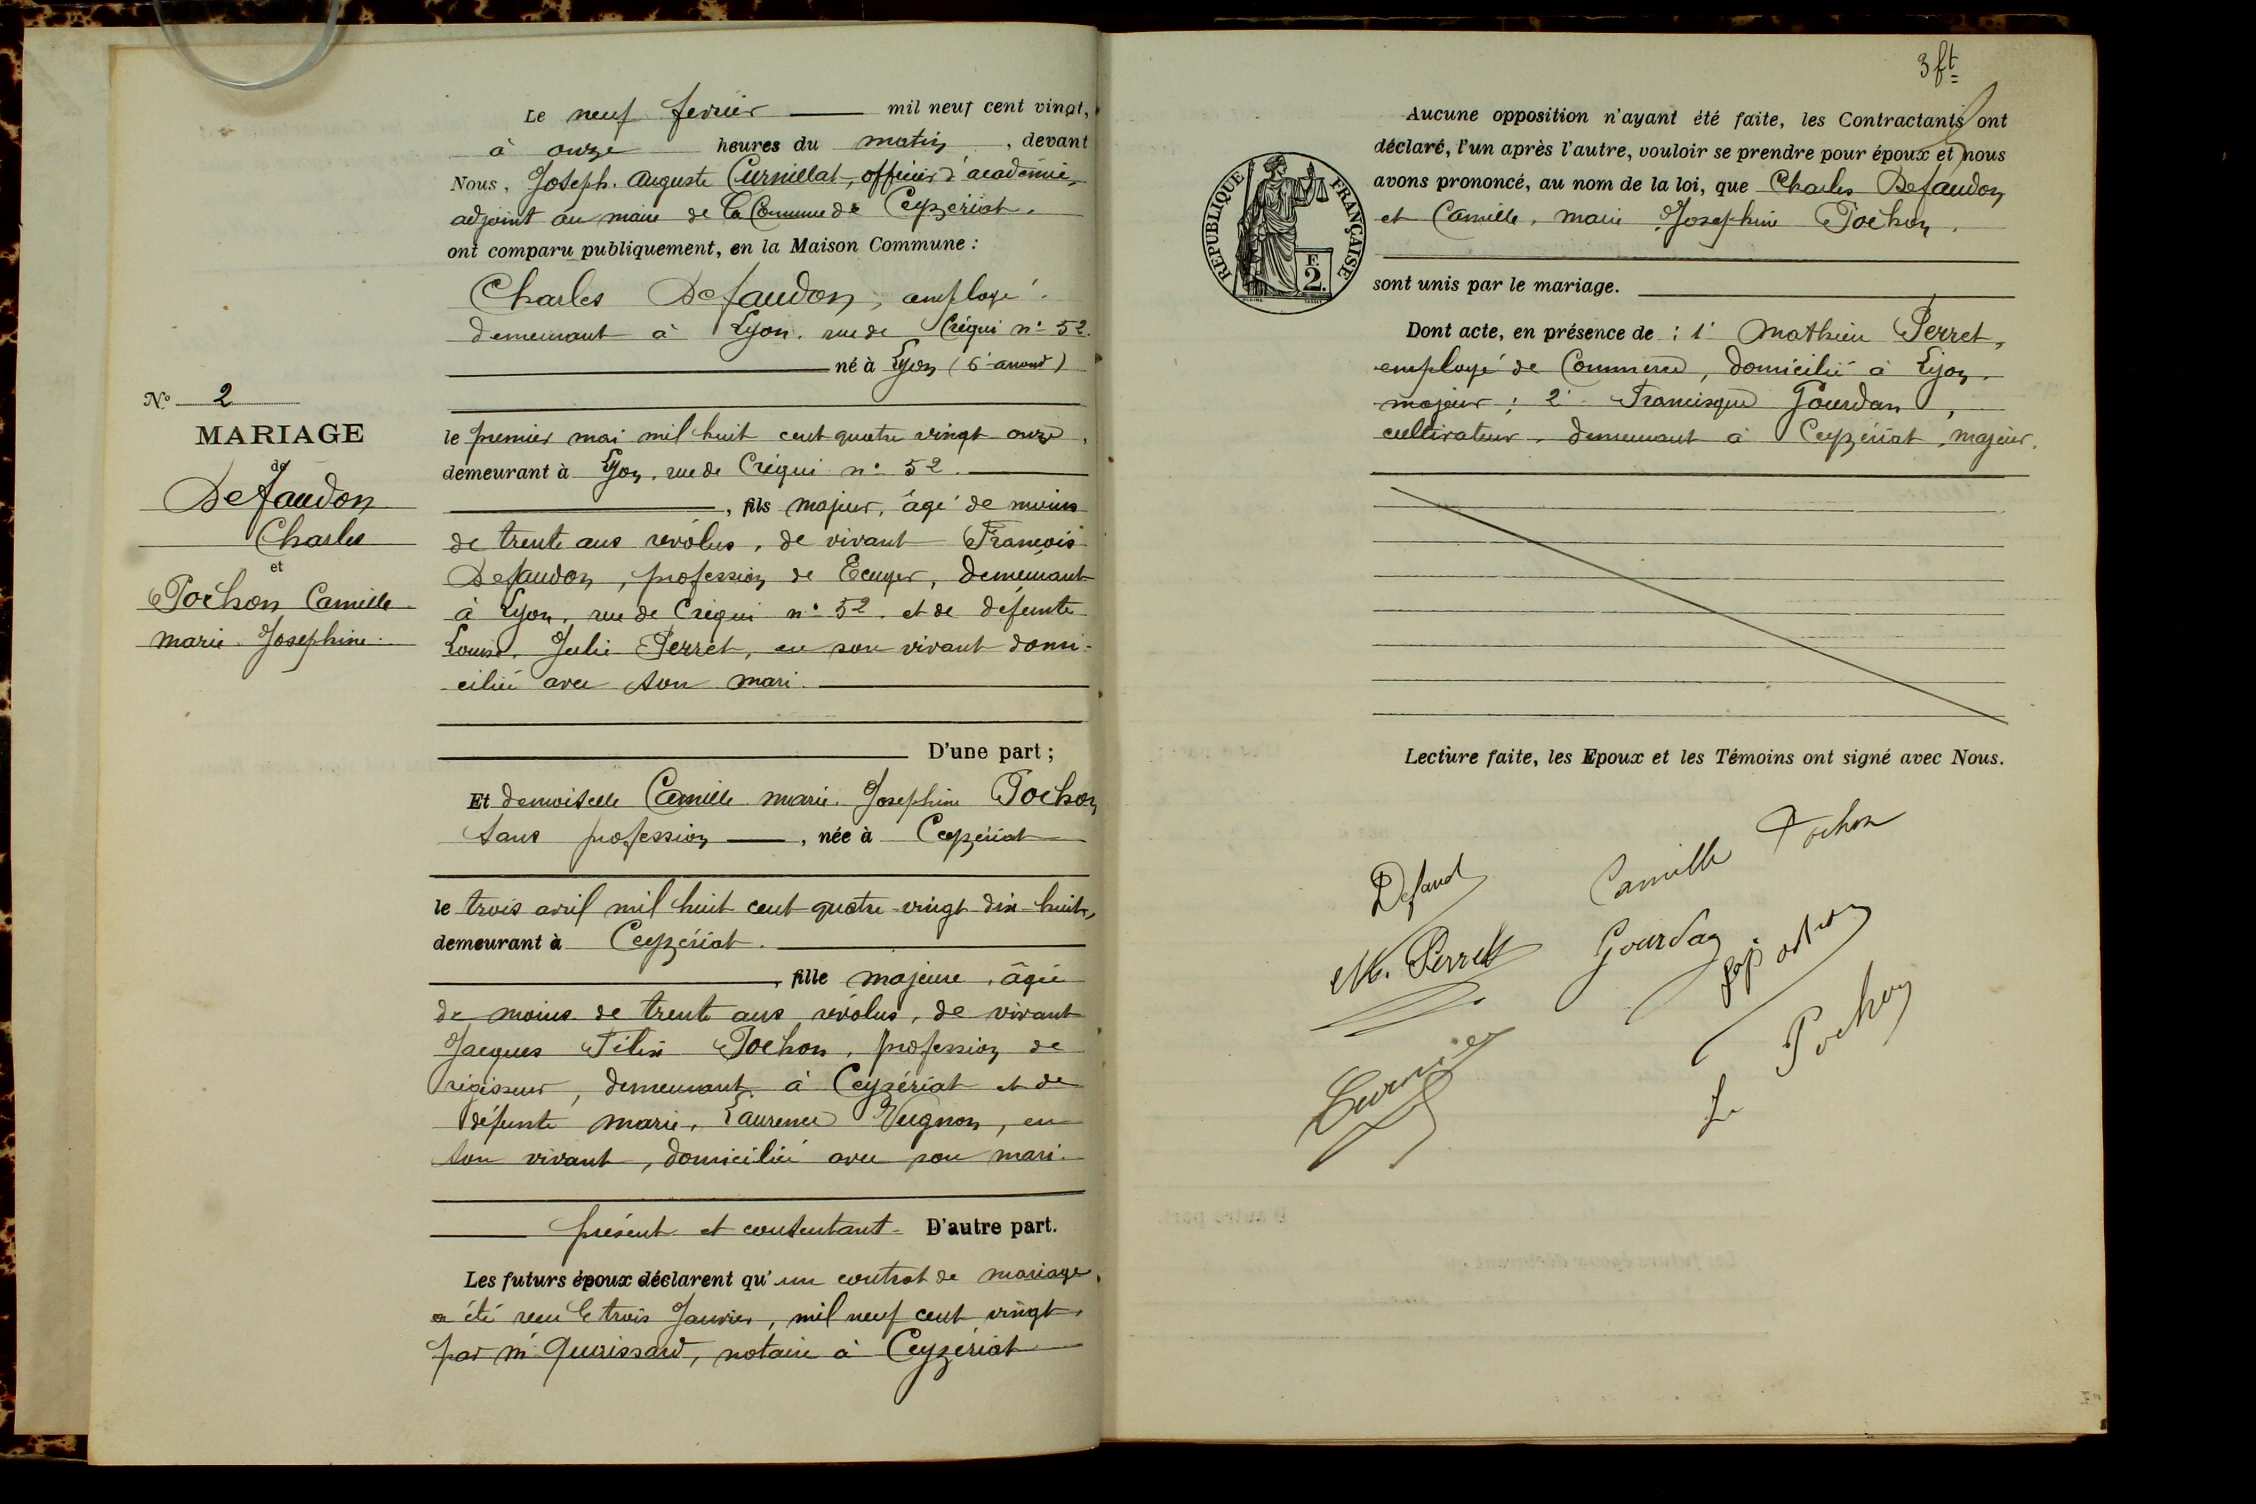 Le neuf fevrier mil neuf cent vingt,
à onze heures du matin, devant
Nous, Joseph. Auguste Curnillat, officier d'académie,
adjoint au maire de la Commune de Ceyzeriat.
ont comparu publiquement, en la Maison Commune :
Charles Defaudon, employé.
demeurant à Lyon. rue de Créqui n° 52.
né à Lyon (6e arrondt)
N° 2
MARIAGE
de
Defaudon
Charles
et
Pochon Camille
marie Josephine.
le premier mai mil huit cent quatre vingt onze,
demeurant à Lyon, rue de Créqui n° 52.
, fils majeur, âgé de moins
de trente ans révolus, de vivant François
Defaudon, profession de Ecuyer, demeurant
à Lyon, rue de Créqui n° 52. et de défunte
Louise, Julie Perret, en son vivant domi-
ciliée avec son mari.
D'une part ;
Et demoiselle Camille marie. Josephine Pochon
sans profession, née à Ceyzériat
le trois avril mil huit cent quatre-vingt dix huit,
demeurant à Ceyzériat.
, fille majeure, âgée
de moins de trente ans révolus, de vivant
Jacques Félix Pochon, profession de
régisseur, demeurant à Ceyzériat et de
défunte marie, Laurence Vugnon, en
son vivant, domiciliée avec son mari.
présent et consentant. D'autre part.
Les futurs époux déclarent qu'un contrat de mariage
a été reçu le trois Janvier, mil neuf cent vingt,
par me Quirissard, notaire à Ceyzériat
3 ft
Aucune opposition n'ayant été faite, les Contractants ont
déclaré, l'un après l'autre, vouloir se prendre pour époux et nous
avons prononcé, au nom de la loi, que Charles Defaudon
et Camille, marie, Josephine Pochon.
RÉPUBLIQUE FRANÇAISE
F.
2.
sont unis par le mariage.
Dont acte, en présence de : 1° Mathieu Perret,
employé de Commerce, domicilié à Lyon,
majeur ; 2° Francisque Gourdan,
cultivateur, demeurant à Ceyzériat, majeur.
Lecture faite, les Epoux et les Témoins ont signé avec Nous.
Camille Pochon
Defaud
M. Perret
Gourdan
Pochon